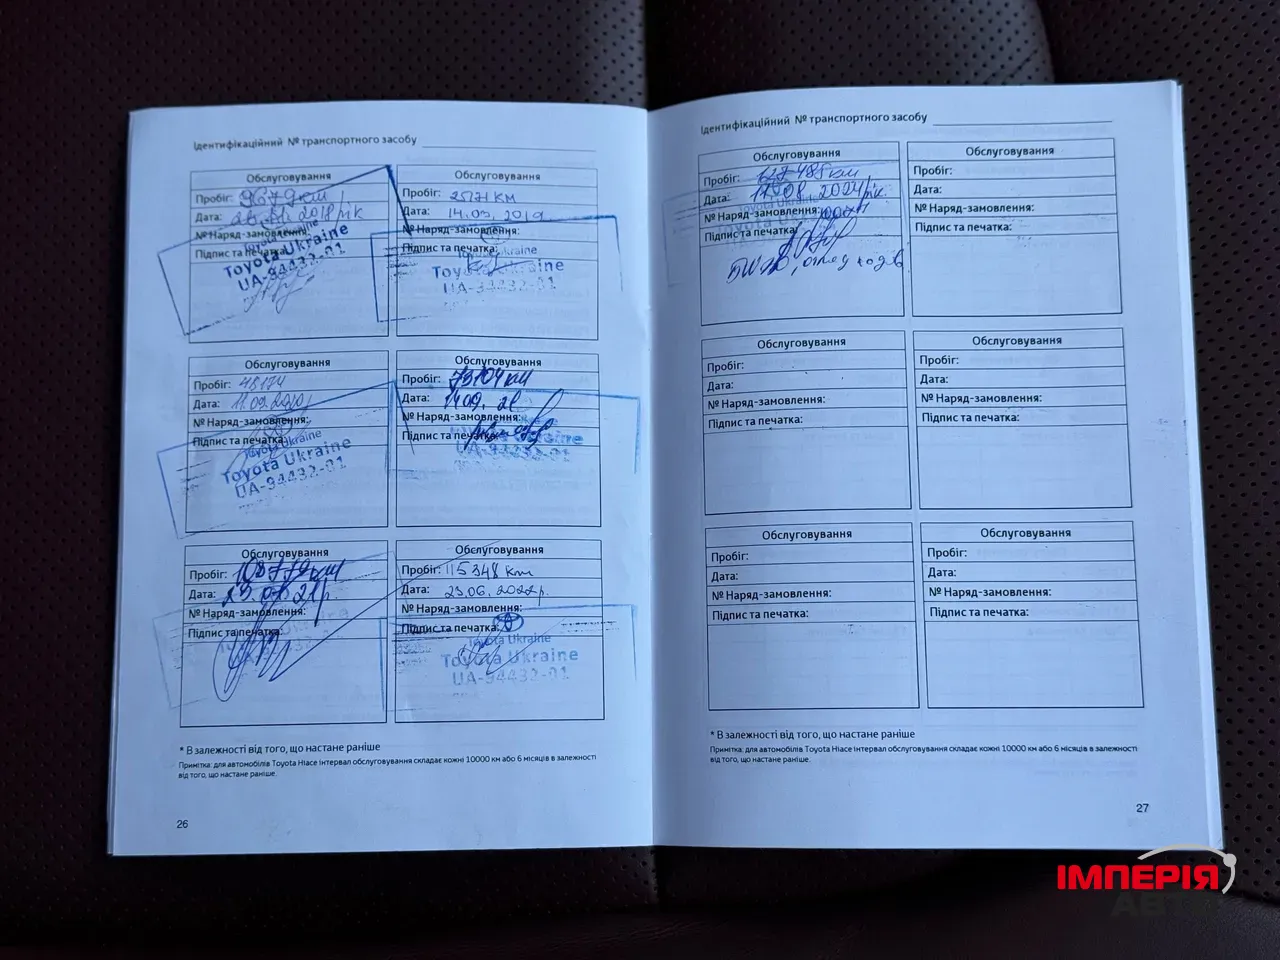 Ідентифікаційний № транспортного засобу
Обслуговування
Пробіг: 9679 км
Дата: 2018 рік
№ Наряд-замовлення:
Підпис та печатка:
Toyota Ukraine
Toyota Ukraine
UA-94432-01
Обслуговування
Пробіг: 25171 км
Дата: 14.09.2019
№ Наряд-замовлення:
Підпис та печатка:
Toyota Ukraine
Toyota Ukraine
UA-94432-01
Обслуговування
Пробіг: 45174
Дата: 11.09.2020
№ Наряд-замовлення:
Підпис та печатка:
Toyota Ukraine
Toyota Ukraine
UA-94432-01
Обслуговування
Пробіг: 73104 км
Дата: 14.09.21
№ Наряд-замовлення:
Підпис та печатка:
UA-94432-01
Обслуговування
Пробіг: 108779 км
Дата:
№ Наряд-замовлення:
Підпис та печатка:
Обслуговування
Пробіг: 115348 км
Дата: 23.06.2022р.
№ Наряд-замовлення:
Підпис та печатка:
Toyota Ukraine
Toyota Ukraine
UA-94432-01
* В залежності від того, що настане раніше
Примітка: для автомобілів Toyota Hiace інтервал обслуговування складає кожні 10000 км або 6 місяців в залежності
від того, що настане раніше.
26
Ідентифікаційний № транспортного засобу
Обслуговування
Пробіг: 127485 км
Дата: 17.08.2024 рік
№ Наряд-замовлення:
Підпис та печатка:
Toyota Ukraine
Обслуговування
Пробіг:
Дата:
№ Наряд-замовлення:
Підпис та печатка:
Обслуговування
Пробіг:
Дата:
№ Наряд-замовлення:
Підпис та печатка:
Обслуговування
Пробіг:
Дата:
№ Наряд-замовлення:
Підпис та печатка:
Обслуговування
Пробіг:
Дата:
№ Наряд-замовлення:
Підпис та печатка:
Обслуговування
Пробіг:
Дата:
№ Наряд-замовлення:
Підпис та печатка:
* В залежності від того, що настане раніше
Примітка: для автомобілів Toyota Hiace інтервал обслуговування складає кожні 10000 км або 6 місяців в залежності
від того, що настане раніше.
27
ІМПЕРІЯ
АВТО